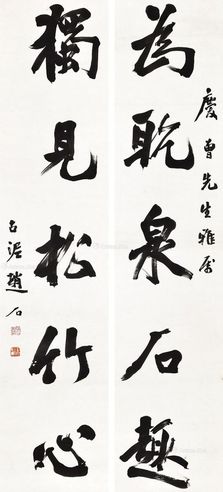 慶曾先生雅屬
為耽泉石趣
獨見松竹心
古泥趙石